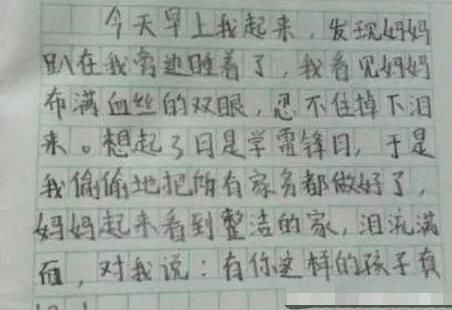 今天早上我起来，发现妈妈
趴在我旁边睡着了，我看见妈妈
布满血丝的双眼，忍不住掉下泪
来。想起了日是学雷锋日，于是
我偷偷地把所有家务都做好了，
妈妈起来看到整洁的家，泪流满
面，对我说：有你这样的孩子真